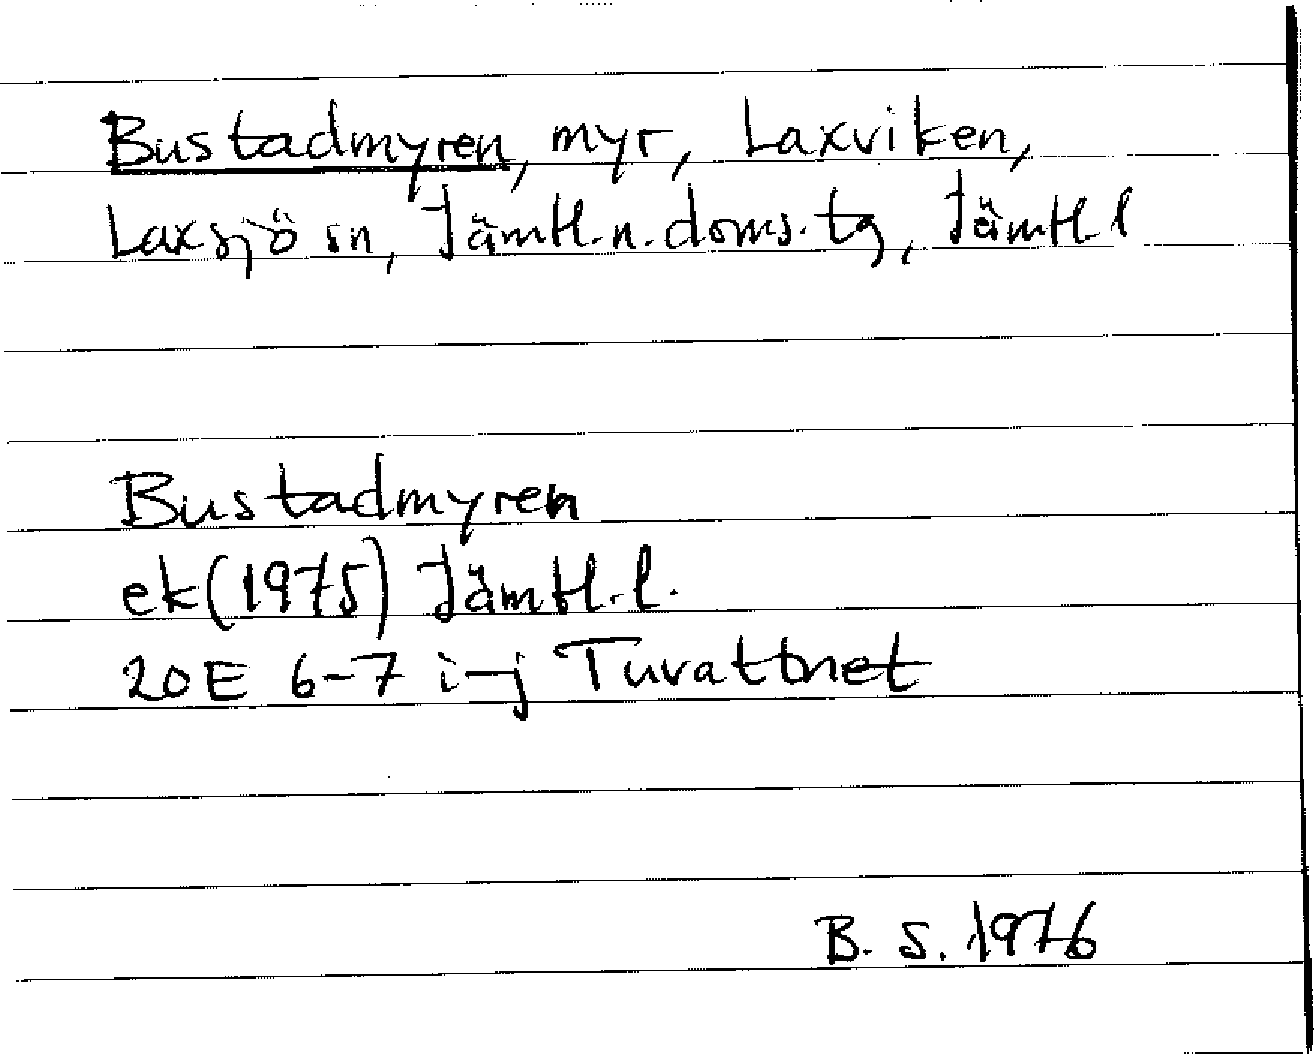 Bustadmyren, myr, Laxviken,
Laxsjö sn, Jämtl.n.doms.tg, Jämtl.l
Bustadmyren
ek(1975) Jämtl.l.
20E 6-7 i-j Tuvattnet
B. S. 1976